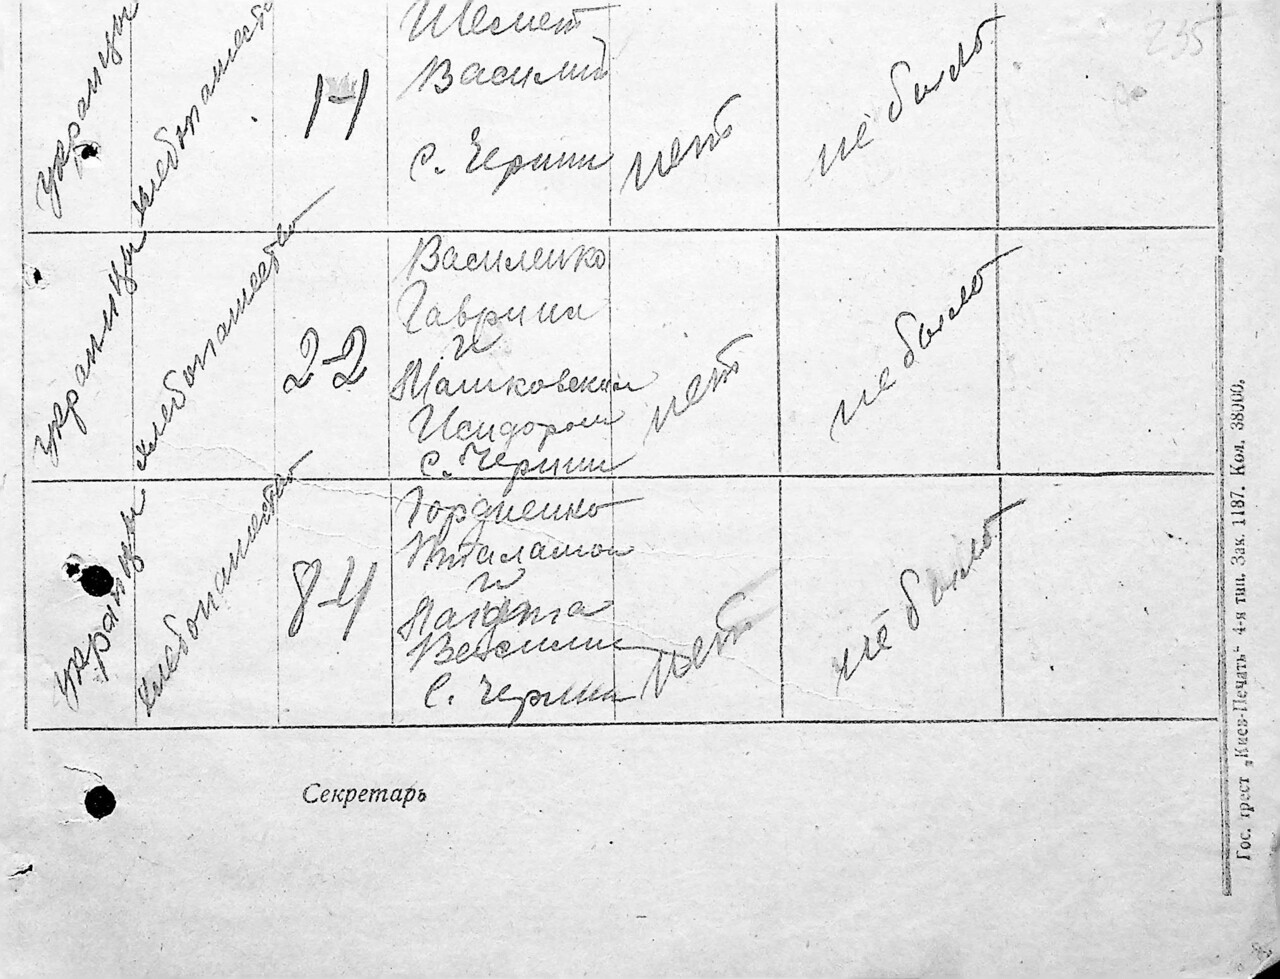 235
украинцы
хлебопашество
1-4
Шемет
Василий
с. Черпин
нет
не было
украинцы
хлебопашество
2-2
Василенко
Гаврила
и
Машковский
Исидором
с. Черпин
нет
не было
украинцы
хлебопашество
8-4
Гордиенко
и
Василий
с. Черпин
нет
не было
Секретарь
Гос. трест „Киев-Печать“ 4-я тип. Зак. 1187. Кол. 38000.